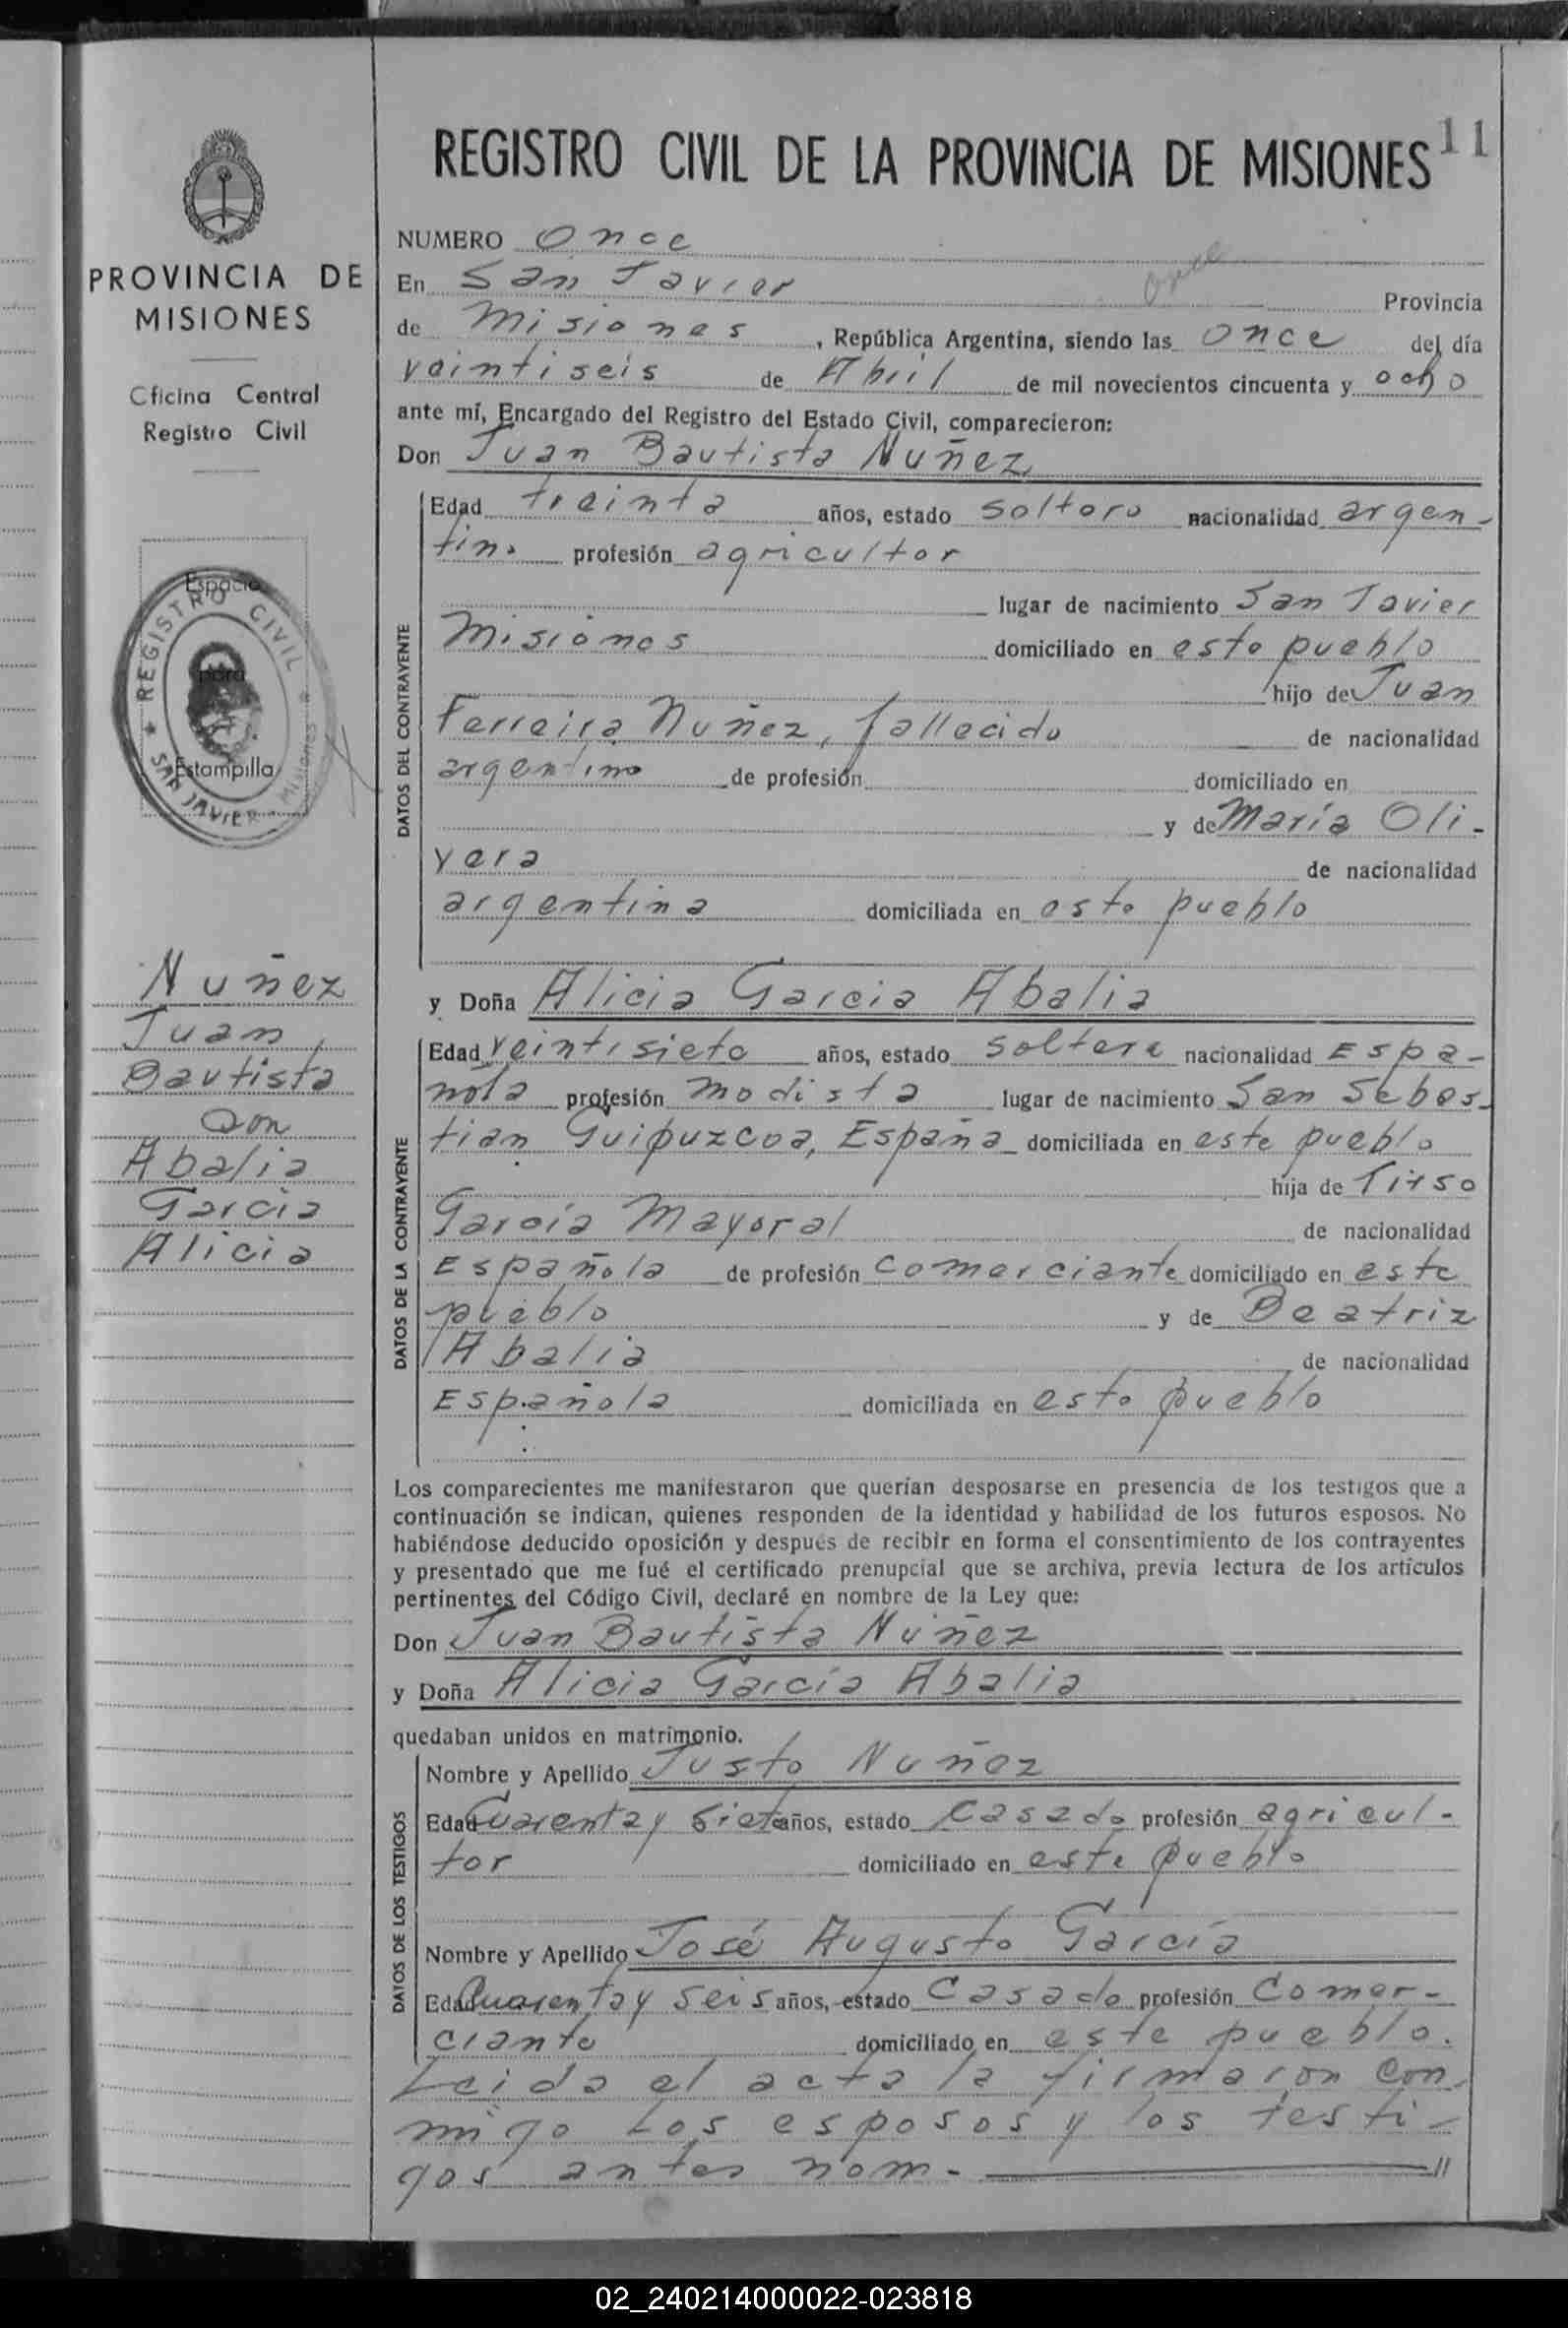 11
REGISTRO CIVIL DE LA PROVINCIA DE MISIONES
PROVINCIA DE
MISIONES
Oficina Central
Registro Civil
Espacio
para
Estampilla
★ REGISTRO CIVIL ★
SAN JAVIER - Misiones
Nuñez
Juan
Bautista
con
Abalia
Garcia
Alicia
NUMERO Once
once
En San Javier Provincia
de Misiones, República Argentina, siendo las once del día
veintiseis de Abril de mil novecientos cincuenta y ocho
ante mí, Encargado del Registro del Estado Civil, comparecieron:
Don Juan Bautista Nuñez
DATOS DEL CONTRAYENTE
Edad treinta años, estado soltero nacionalidad argen-
tino profesión agricultor
lugar de nacimiento San Javier
Misiones domiciliado en este pueblo
hijo de Juan
Ferreira Nuñez, fallecido de nacionalidad
argentino de profesión domiciliado en
y de María Oli-
vera de nacionalidad
argentina domiciliada en este pueblo
y Doña Alicia Garcia Abalia
DATOS DE LA CONTRAYENTE
Edad veintisiete años, estado soltera nacionalidad Espa-
ñola profesión modista lugar de nacimiento San Sebas-
tian Guipuzcoa, España domiciliada en este pueblo
hija de Tirso
García Mayoral de nacionalidad
Española de profesión comerciante domiciliado en este
pueblo y de Beatriz
Abalia de nacionalidad
Española domiciliada en este pueblo
Los comparecientes me manifestaron que querían desposarse en presencia de los testigos que a
continuación se indican, quienes responden de la identidad y habilidad de los futuros esposos. No
habiéndose deducido oposición y después de recibir en forma el consentimiento de los contrayentes
y presentado que me fué el certificado prenupcial que se archiva, previa lectura de los artículos
pertinentes del Código Civil, declaré en nombre de la Ley que:
Don Juan Bautista Nuñez
y Doña Alicia García Abalia
quedaban unidos en matrimonio.
DATOS DE LOS TESTIGOS
Nombre y Apellido Justo Nuñez
Edad Cuarenta y siete años, estado casado profesión agricul-
tor domiciliado en este pueblo
Nombre y Apellido José Augusto García
Edad Cuarenta y seis años, estado Casado profesión Comer-
ciante domiciliado en este pueblo.
Leida el acta la firmaron con-
migo los esposos y los testi-
gos antes nom-
02_240214000022-023818